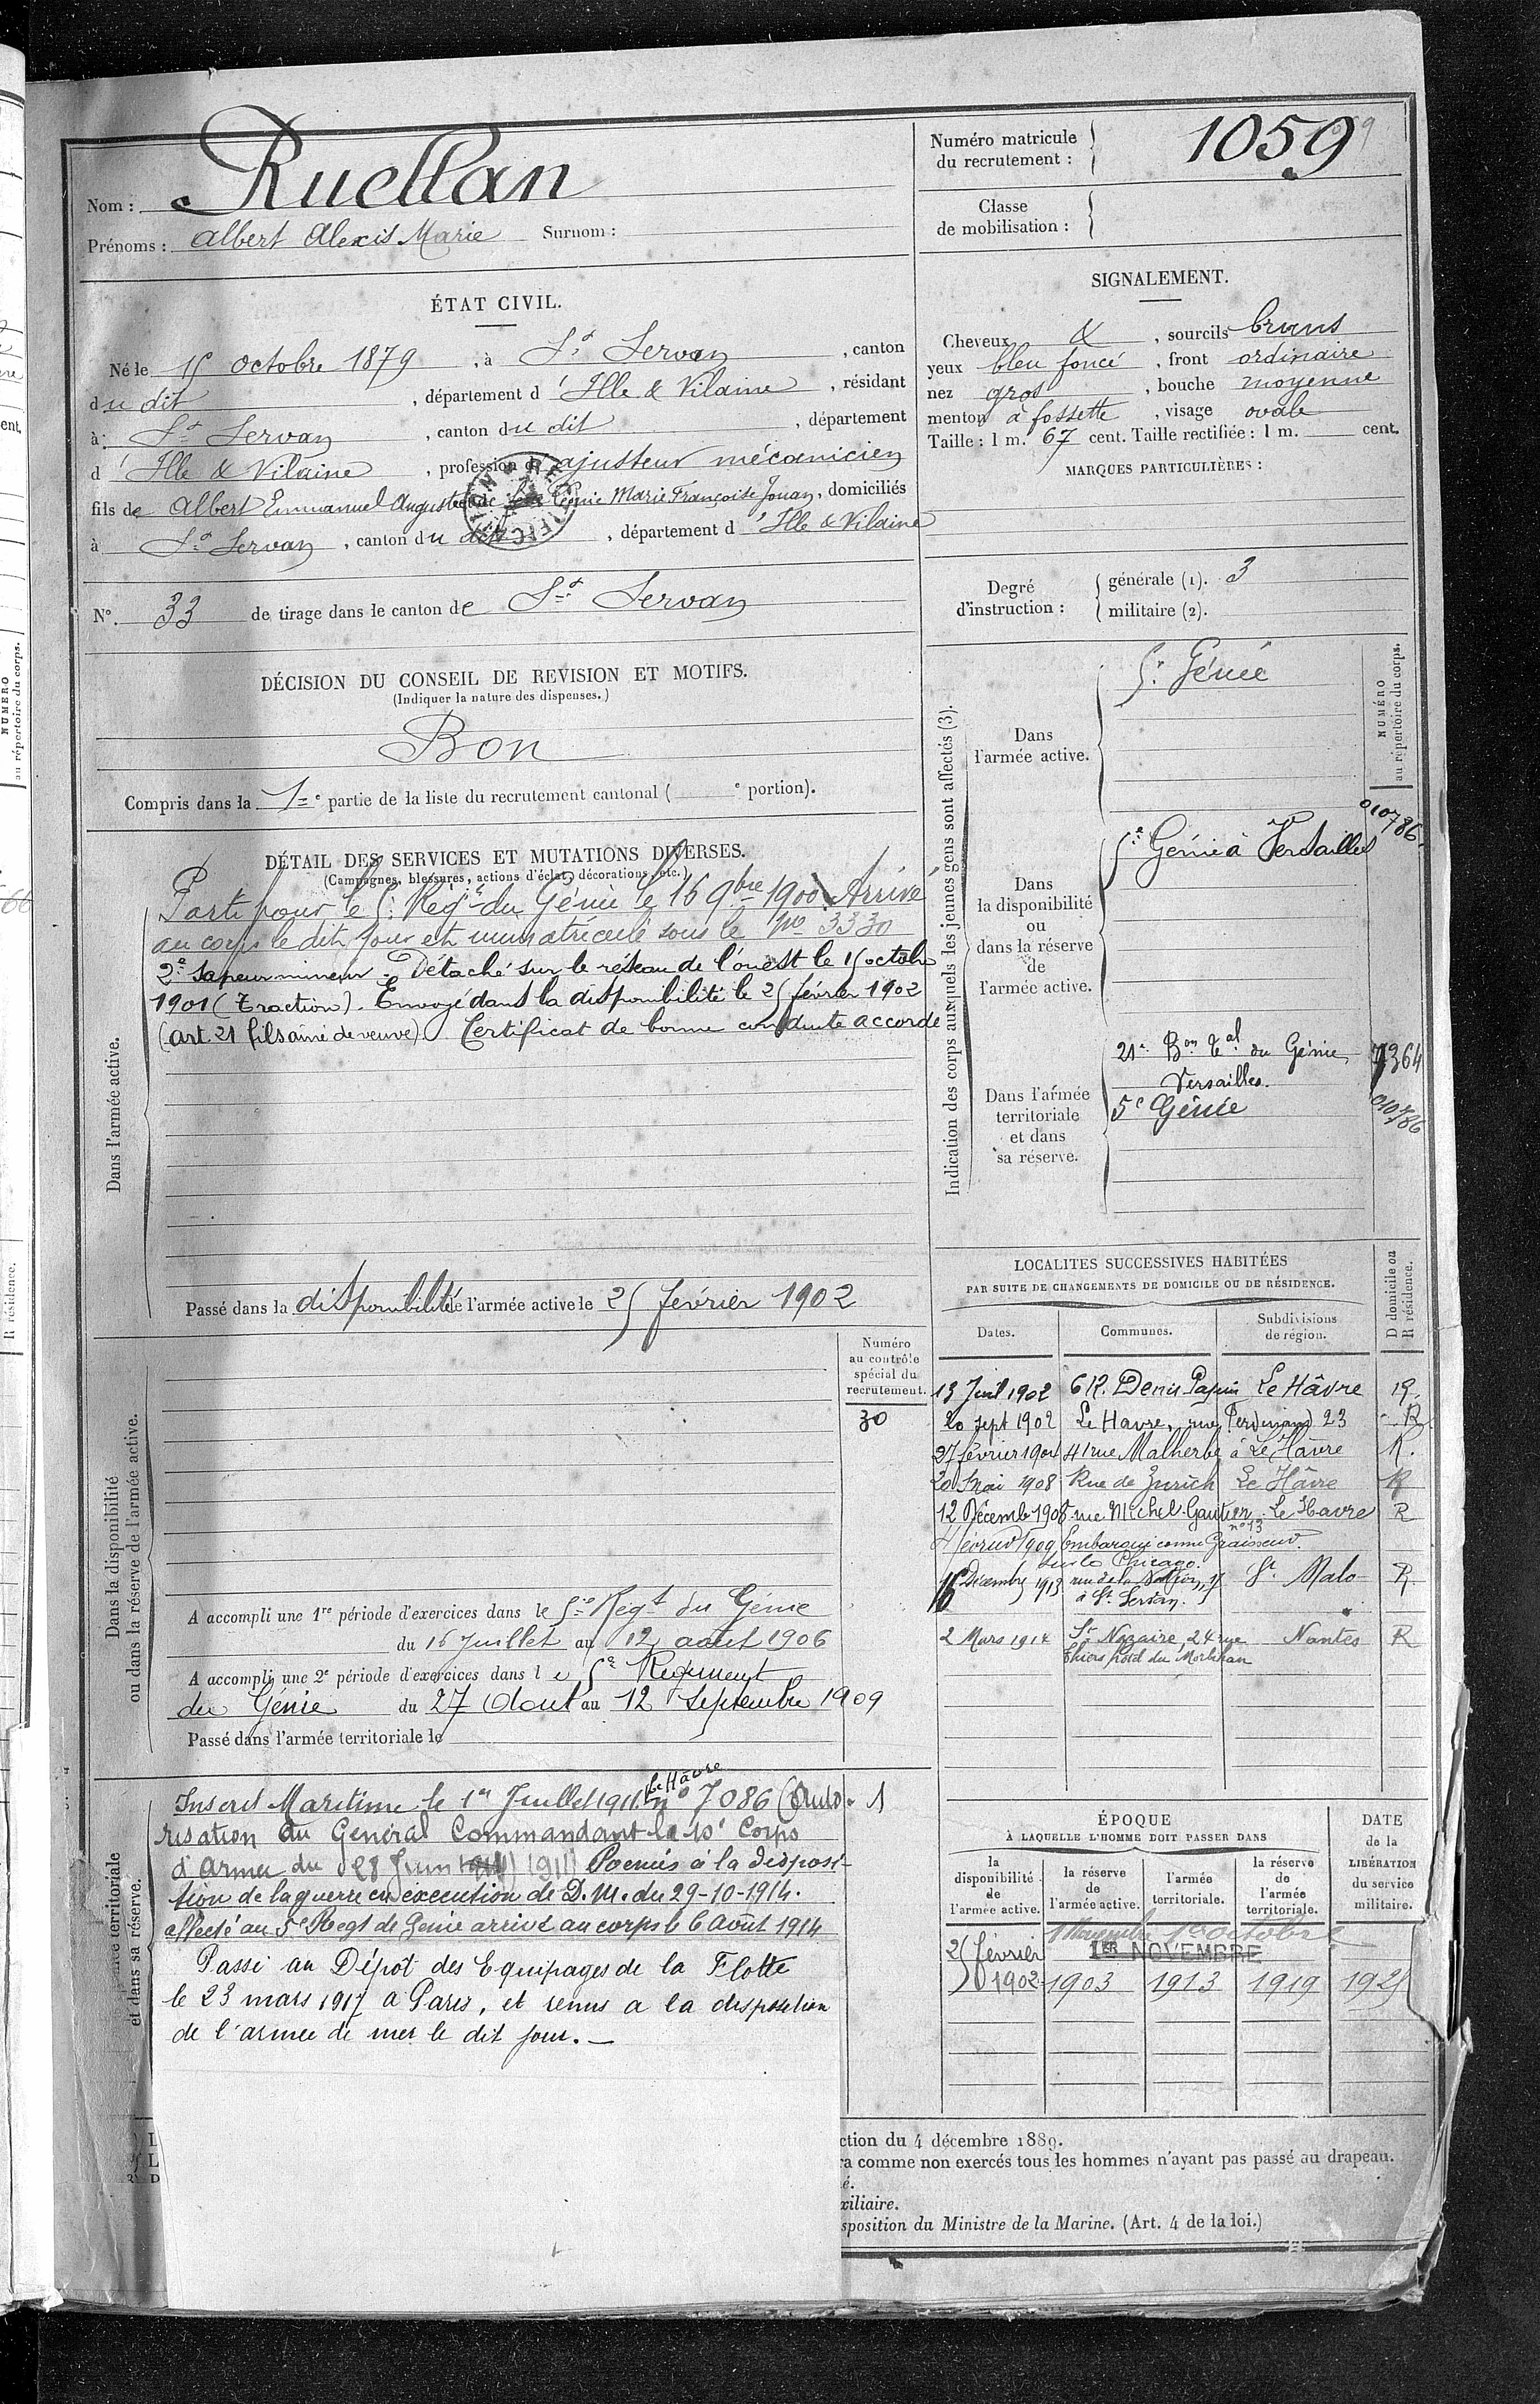 Nom : Ruellan
Prénoms : Albert Alexis Marie Surnom :
Numéro matricule
du recrutement : 1059
Classe
de mobilisation :
ÉTAT CIVIL.
Né le 15 octobre 1879, à St Servan, canton
du dit, département d'Ille & Vilaine, résidant
à St Servan, canton du dit, département
d'Ille & Vilaine, profession d ajusteur mécanicien
fils de Albert Emmanuel Auguste et de Marie Françoise Jouan, domiciliés
à St Servan, canton du dit, département d'Ille & Vilaine
N° 33 de tirage dans le canton de St Servan
SIGNALEMENT.
Cheveux &, sourcils bruns
yeux bleu foncé, front ordinaire
nez gros, bouche moyenne
menton à fossette, visage ovale
Taille : 1 m. 67 cent. Taille rectifiée : 1 m. cent.
MARQUES PARTICULIÈRES :
Degré
d'instruction :
générale (1). 3
militaire (2).
DÉCISION DU CONSEIL DE REVISION ET MOTIFS.
(Indiquer la nature des dispenses.)
Bon
Compris dans la 1re partie de la liste du recrutement cantonal ( e portion).
DÉTAIL DES SERVICES ET MUTATIONS DIVERSES.
(Campagnes, blessures, actions d'éclat, décorations, etc.)
Dans l'armée active.
Parti pour le 5e Régt du Génie le 16 9bre 1900. Arrivé
au corps le dit jour et immatriculé sous le No 3330
2e sapeur mineur. Détaché sur le réseau de l'ouest le 15 octobre
1901 (Traction). Envoyé dans la disponibilité le 25 février 1902
(art. 21 fils ainé de veuve) Certificat de bonne conduite accordé
Passé dans la disponibilité de l'armée active le 25 février 1902
Indication des corps auxquels les jeunes gens sont affectés (3).
NUMÉRO
au répertoire du corps.
Dans
l'armée active.
5e Génie
Dans
la disponibilité
ou
dans la réserve
de
l'armée active.
5e Génie à Versailles 010786
Dans l'armée
territoriale
et dans
sa réserve.
21e Bon Tal du Génie 7364
Versailles.
5e Génie 010786
LOCALITES SUCCESSIVES HABITÉES
PAR SUITE DE CHANGEMENTS DE DOMICILE OU DE RÉSIDENCE.
D domicile ou
R résidence.
Dates. Communes. Subdivisions
de région.
13 Juil 1902 6 R. Denis Papin Le Hâvre R.
20 sept 1902 Le Havre, rue Ferdinand 23 R
27 février 1904 41 rue Malherbe à Le Hâvre R.
20 Mai 1908 Rue de Zurich Le Hâvre R
12 Décemb 1908 rue Michel Gautier n° 13 Le Havre R
1909 Embarqué comme Graisseur
sur le Chicago.
16 Décembre 1913 rue de la St Malo R.
à St Servan.
2 Mars 1914 St Nazaire, 24 rue Nantes R
Thiers hôtel du Morbihan
Dans la disponibilité
ou dans la réserve de l'armée active.
Numéro
au contrôle
spécial du
recrutement.
30
A accompli une 1re période d'exercices dans le 5e Régt du Génie
du 16 Juillet au 12 août 1906
A accompli une 2e période d'exercices dans le 5e Régiment
du Génie du 27 Aout au 12 Septembre 1909
Passé dans l'armée territoriale le
et dans sa réserve.
Inscrit Maritime le 1er Juillet 1911. Le Hâvre n° 7086 (Auto- 1
risation du Général Commandant le 10e Corps
d'Armée du 28 Juin 1911) Remis à la disposi-
tion de la guerre en exécution de D.M. du 29-10-1914.
affecté au 5e Regt de Genie arrivé au corps le 6 Août 1914
Passé au Dépot des Equipages de la Flotte
le 23 mars 1917 a Paris, et remis a la disposition
de l'armee de mer le dit jour. —
ÉPOQUE
À LAQUELLE L'HOMME DOIT PASSER DANS
la
disponibilité
de
l'armée active.
la réserve
de
l'armée active.
l'armée
territoriale.
la réserve
de
l'armée
territoriale.
DATE
de la
LIBÉRATION
du service
militaire.
1 Novembre 1er octobre
25 février 1ER NOVEMBRE
1902 1903 1913 1919 1925
ction du 4 décembre 1889.
ra comme non exercés tous les hommes n'ayant pas passé au drapeau.
é.
xiliaire.
sposition du Ministre de la Marine. (Art. 4 de la loi.)